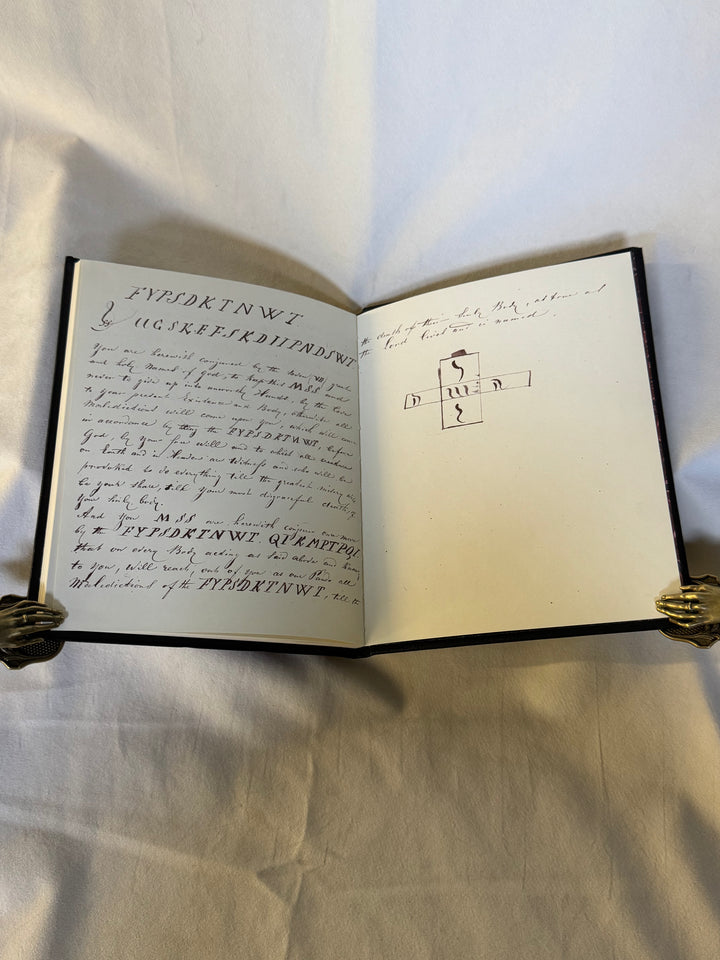 FYPSDKTNWT
UGSKEFSKDIIPNDSWT
You are herewith conjured by the Seven VII great
and holy Names of God, to keep this MSS and
never to give up into unworthy Hands, by the Love
to your present Existence and Body, otherwise all
Maledictions will come upon you, which will come
in accordance by the FYPSDKTNWT, before
God, by your free will and to which all creatures
on Earth and in Heaven are Witness and who will be
provoked to do everything till the greatest misery will
be your share, till your most disgraceful death, of
your holy body.
And you MSS are herewith conjured once more
by the FYPSDKTNWT. QIRMPTPQI.
that on every Body acting as said above and
to you, will reach, out of you as our all
Maledictions of the FYPSDKTNWT, till the
the death of their holy Body, as true as
the Lord lives and is named.